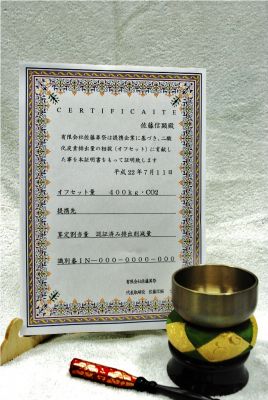 CERTIFICAITE
佐藤信顕殿
有限会社佐藤葬祭は提携企業に基づき、二酸
化炭素排出量の相殺(オフセット)に貢献し
た事を本証明書をもって証明致します
平成22年7月11日
オフセット量 400kg・CO2
提携先
算定割当量 認証済み排出削減量
識別番IN―000―0000―000
有限会社佐藤葬祭
代表取締役 佐藤信顕